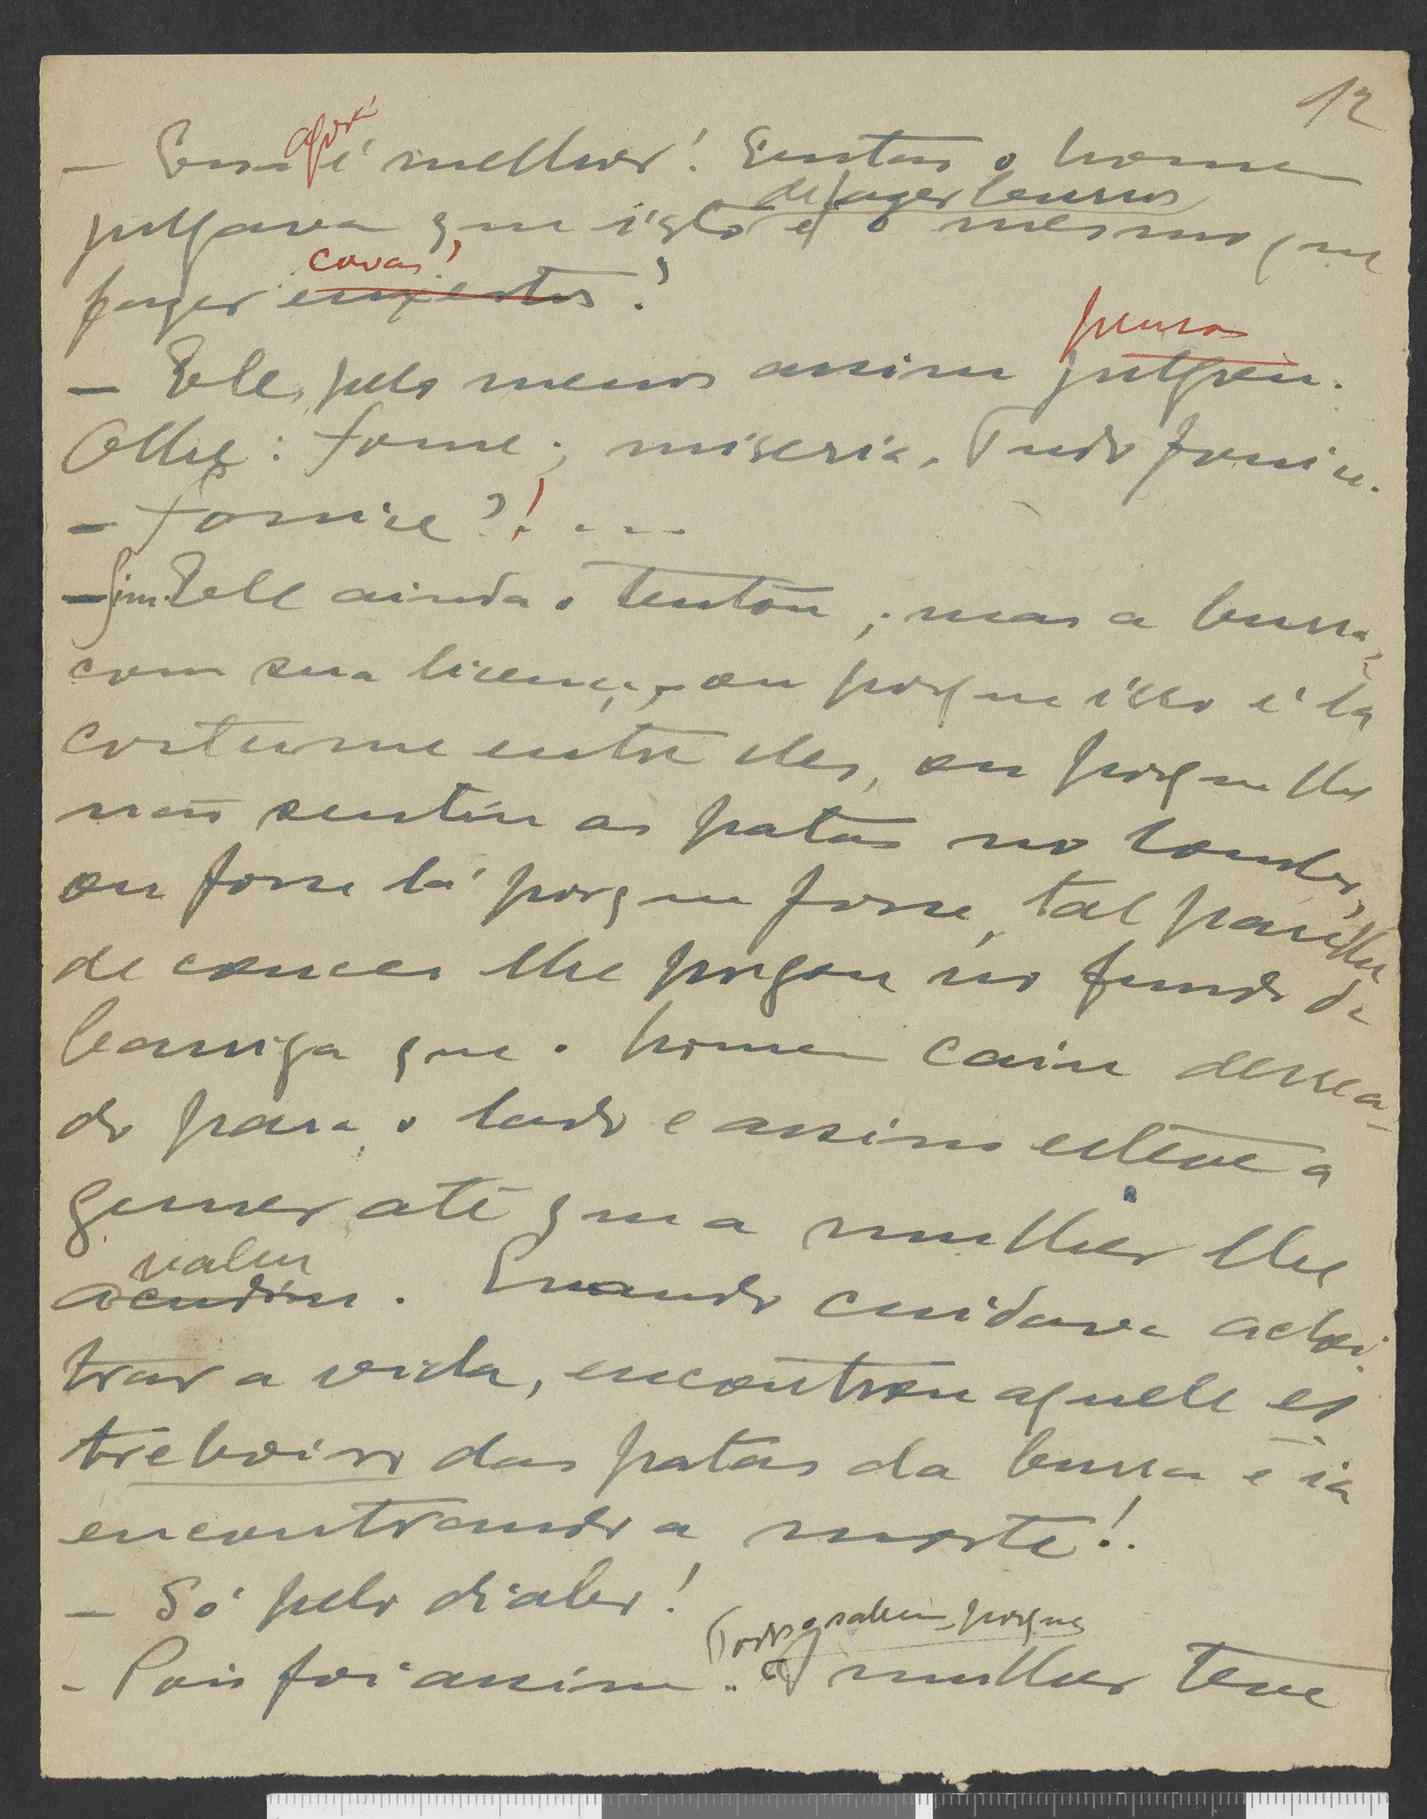 12
— Essa agora é melhor! Então o homem
julgava que isto de fazer burros é o mesmo que
fazer enxertos covas!?
— Ele, pelo menos assim julgou pensou.
Olhe: fome; miseria. Tudo fornica.
— Fornica?! ...
— Sim. Ele ainda o tentou; mas a burra,
com sua licença, ou porque isso é lá
costume entre eles, ou porque lhe
não sentiu as patas no lombo,
ou fosse lá porque fosse, tal parelha
de couces lhe pregou no fundo da
barriga que o homem caiu derrea-
do para o lado e assim esteve a
gemer até que a mulher lhe
acudiu valeu. Quando cuidava
trar a vida, encontrou aquele es-
treboiro das patas da burra e ia
encontrando a morte!.
— Só pelo diabo!
— Pois foi assim. Todos o sabem, porque a mulher teve